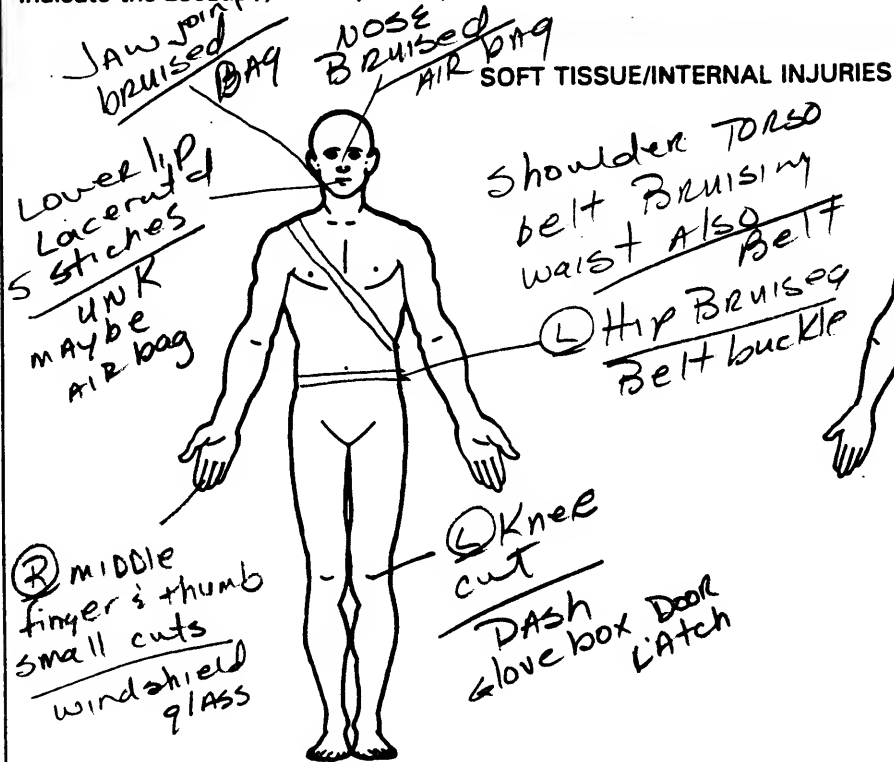 JAW joint
bruised
BAG
NOSE
Bruised
AIR bAg
SOFT TISSUE/INTERNAL INJURIES
Lower lip
Lacerat d
5 stiches
UNK
mAybe
AIR bag
Shoulder TORSO
belt Bruising
waist Also
Belt
(L) Hip Bruised
Belt buckle
(R) miDDle
finger & thumb
small cuts
windshield
glAss
(L) Knee
cut
DASh
Glove box DooR
LAtch